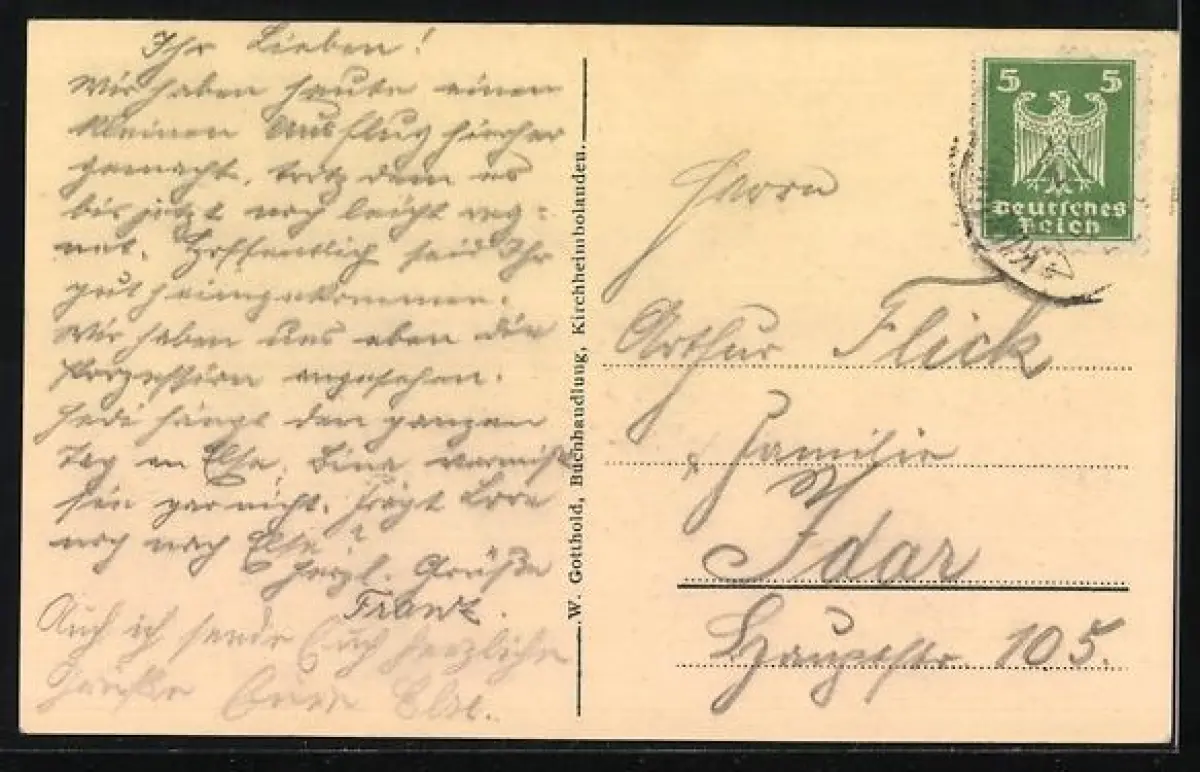 Ihr Lieben!
Wir haben heute einen
kleinen Ausflug hierher
gemacht, trotz dem es
bis jetzt noch leicht reg=
net. Hoffentlich seid Ihr
gut heimgekommen.
Wir haben uns eben die
Prozession angesehen.
Hedi hängt den ganzen
Tag an Else,
gar nicht. Frägt Lore
noch nach Else?
Herzl. Grüße
Franz.
Auch ich sende Euch herzliche
Grüße Eure Else.
W. Gotthold, Buchhandlung, Kirchheimbolanden.
5 5
Deutsches
Reich
Herrn
Arthur Flick
Familie
Idar
Hauptstr. 105.